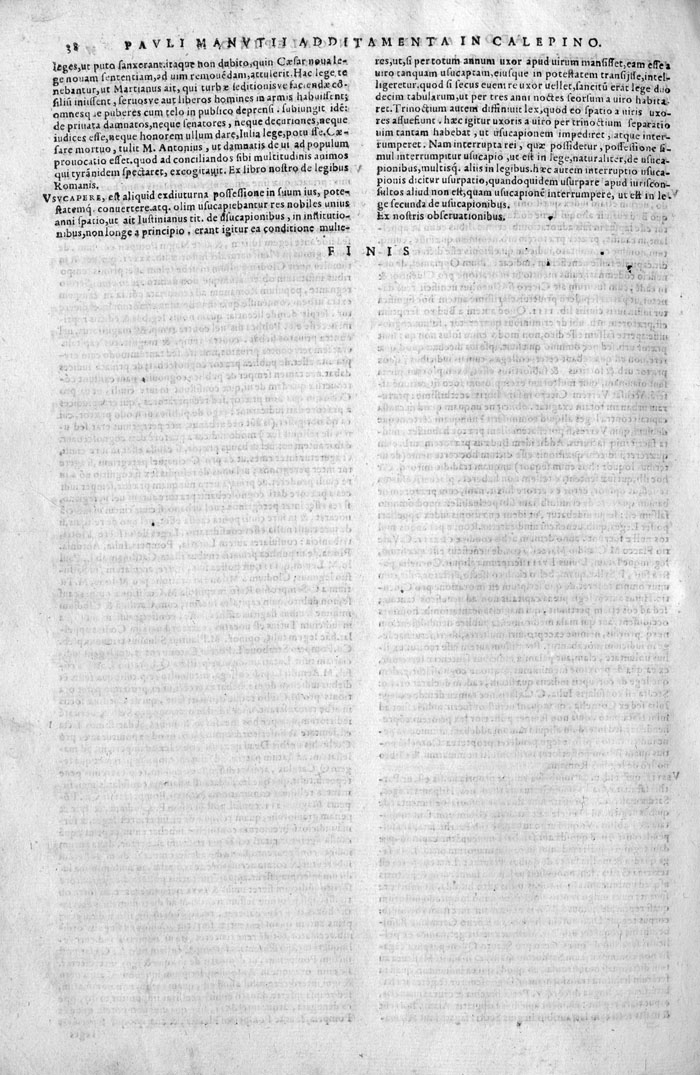 38 PAVLI MANVTII ADDITAMENTA IN CALEPINO.
leges,ut puto sanxerant:itaque non dubito,quin Cæsar noua le-
ge nouam sententiam,ad uim remouẽdam,attulerit. Hac lege te
nebantur,ut Martianus ait, qui turbæ seditionisve faciendæ cõ-
silia inissent, seruosve aut liberos homines in armis habuissent;
omnesq́;e puberes cum telo in publico deprensi. subiungit idẽ:
de priuata damnatos,neque senatores, neque decuriones,neque
iudices esse,neque honorem ullum dare,Iulia lege,pot⁹ sse, Cæ-
sare mortuo, tulit M. Antonius, ut damnatis de ui ad populum
prouocatio esset.quod ad conciliandos sibi multitudinis animos
qui tyránidem spectaret, excogitauit. Ex libro nostro de legibus
Romanis.
VSVCAPERE, est aliquid ex diuturna possessione in suum ius, pote-
statemq̃. conuertere.atq̃. olim usucapiebantur res nobiles unius
anni spatio,ut ait Iustinianus tit. de usucapionibus, in institutio-
nibus,non longe a principio. erant igitur ea conditione mulie-
res,ut,si per totum annum uxor apud uirum mansisset,eam esse a
uiro tanquam usucaptam, eiusque in potestatem transijsse,intel-
ligeretur.quod si secus euenire uxor uellet,sancitũ erat lege duo
decim tabularum,ut per tres anni noctes seorsum a uiro habita
ret. Trinoctium autem diffinuit lex,quod eo spatio a uiris uxo-
res assuefiunt. hæc igitur uxoris a uiro per trinoctium separatio
uim tantam habebat, ut usucapionem impediret, atque inter-
rumperet. Nam interrupta rei, quæ possidetur, possessione si
mul interrumpitur usucapio, ut est in lege,naturaliter,de usuca-
pionibus,multisq̃. aliis in legibus.hæc autem interruptio usuca-
pionis dicitur usurpatio,quandoquidem usurpare apud iuriscon-
sultos aliud non est, quam usucapionẽ interrumpere, ut est in le-
ge secunda de usucapionibus.
Ex nostris obseruationibus.
FINIS